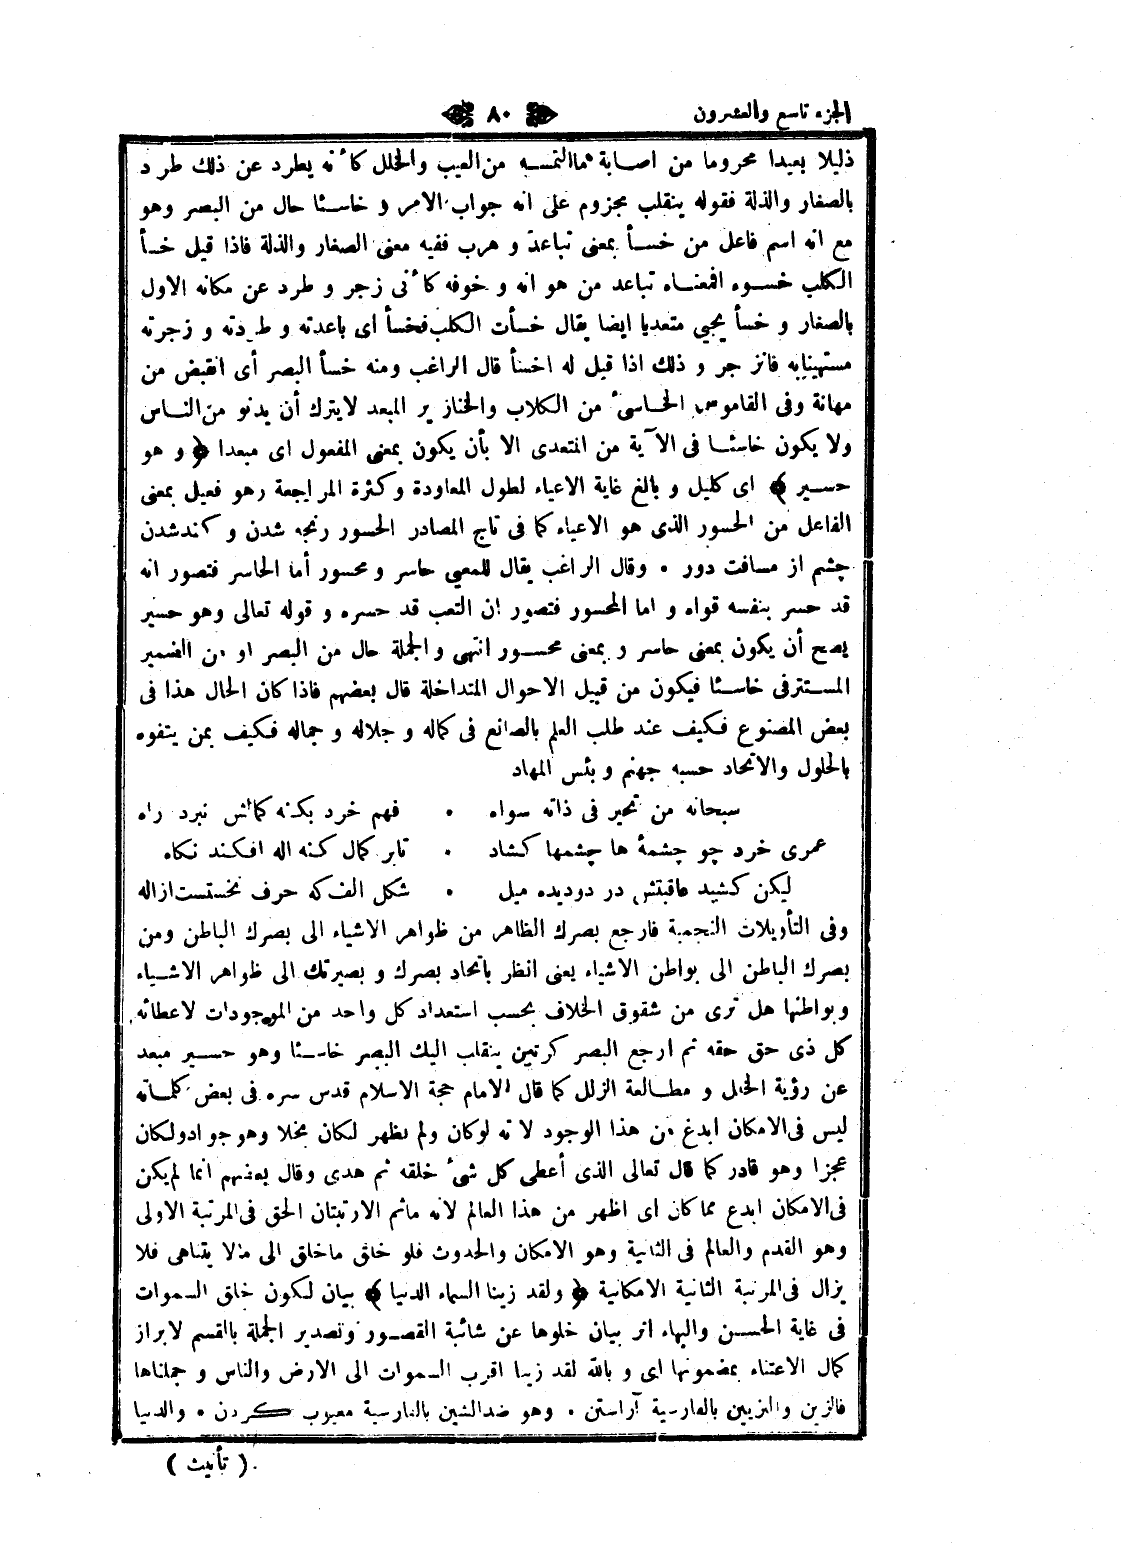 الجزء تاسع والعشرون ٨٠
ذليلا بعيدا محروما من اصابة ماالتمسه من العيب والخلل كأنه يطرد عن ذلك طرد
بالصغار والذلة فقوله ينقلب مجزوم على انه جواب الامر و خاسئا حال من البصر وهو
مع انه اسم فاعل من خسأ بمعنى تباعد و هرب ففيه معنى الصغار والذلة فاذا قيل خسأ
الكلب خسوء افمعناه تباعد من هو انه و خوفه كأنى زجر و طرد عن مكانه الاول
بالصغار و خسأ يجئ متعديا ايضا يقال خسأت الكلب فخسأ اى باعدته و طردته و زجرته
مستهينابه فانزجر و ذلك اذا قيل له اخسأ قال الراغب ومنه خسأ البصر أى انقبض من
مهانة وفى القاموس الخاسئ من الكلاب والخنازير المبعد لايترك أن يدنو من الناس
ولا يكون خاسئا فى الآية من المتعدى الا بأن يكون بمعنى المفعول اى مبعدا ﴿ و هو
حسير ﴾ اى كليل و بالغ غاية الاعياء لطول المعاودة وكثرة المراجعة وهو فعيل بمعنى
الفاعل من الحسور الذى هو الاعياء كما فى تاج المصادر الحسور رنجه شدن و كندشدن
چشم از مسافت دور • وقال الراغب يقال للمعي حاسر و محسور أما الحاسر فتصور انه
قد حسر بنفسه قواه و اما المحسور فتصور ان التعب قد حسره و قوله تعالى وهو حسير
يصح أن يكون بمعنى حاسر و بمعنى محسور انتهى والجملة حال من البصر او من الضمير
المستترفى خاسئا فيكون من قبيل الاحوال المتداخلة قال بعضهم فاذا كان الحال هذا فى
بعض المصنوع فكيف عند طلب العلم بالصانع فى كماله و جلاله و جماله فكيف بمن يتفوه
بالحلول والاتحاد حسبه جهنم و بئس المهاد
سبحانه من تحير فى ذاته سواه • فهم خرد بكنه كمالش نبرد راه
عمرى خرد چو چشمهٔ ها چشمها كشاد • تابر كمال كنه اله افكند نكاه
ليكن كشيد عاقبتش در دوديده ميل • شكل الف كه حرف نخستست ازاله
وفى التأويلات النجمية فارجع بصرك الظاهر من ظواهر الاشياء الى بصرك الباطن ومن
بصرك الباطن الى بواطن الاشياء يعنى انظر باتحاد بصرك و بصيرتك الى ظواهر الاشياء
وبواطنها هل ترى من شقوق الخلاف بحسب استعداد كل واحد من الموجودات لاعطائه
كل ذى حق حقه ثم ارجع البصر كرتين ينقلب اليك البصر خاسئا وهو حسير مبعد
عن رؤية الخلل و مطالعة الزلل كما قال الامام حجة الاسلام قدس سره فى بعض كلماته
ليس فى الامكان ابدع من هذا الوجود لانه لوكان ولم يظهر لكان بخلا وهو جوادولكان
عجزا وهو قادر كما قال تعالى الذى أعطى كل شئ خلقه ثم هدى وقال بعضهم انما لم يكن
فى الامكان ابدع مماكان اى اظهر من هذا العالم لانه ماثم الارتبتان الحق فى المرتبة الاولى
وهو القدم والعالم فى الثانية وهو الامكان والحدوث فلو خلق ماخلق الى مالا يتناهى فلا
يزال فى المرتبة الثانية الامكانية ﴿ ولقد زينا السماء الدنيا ﴾ بيان لكون خلق السموات
فى غاية الحسن والبهاء اثر بيان خلوها عن شائبة القصور وتصدير الجملة بالقسم لابراز
كمال الاعتناء بمضمونها اى و بالله لقد زينا اقرب السموات الى الارض والناس و جملناها
فالزين والتزيين بالفارسية آراستن • وهو ضدالشين بالفارسية معيوب كردن • والدنيا
( تأنيث )